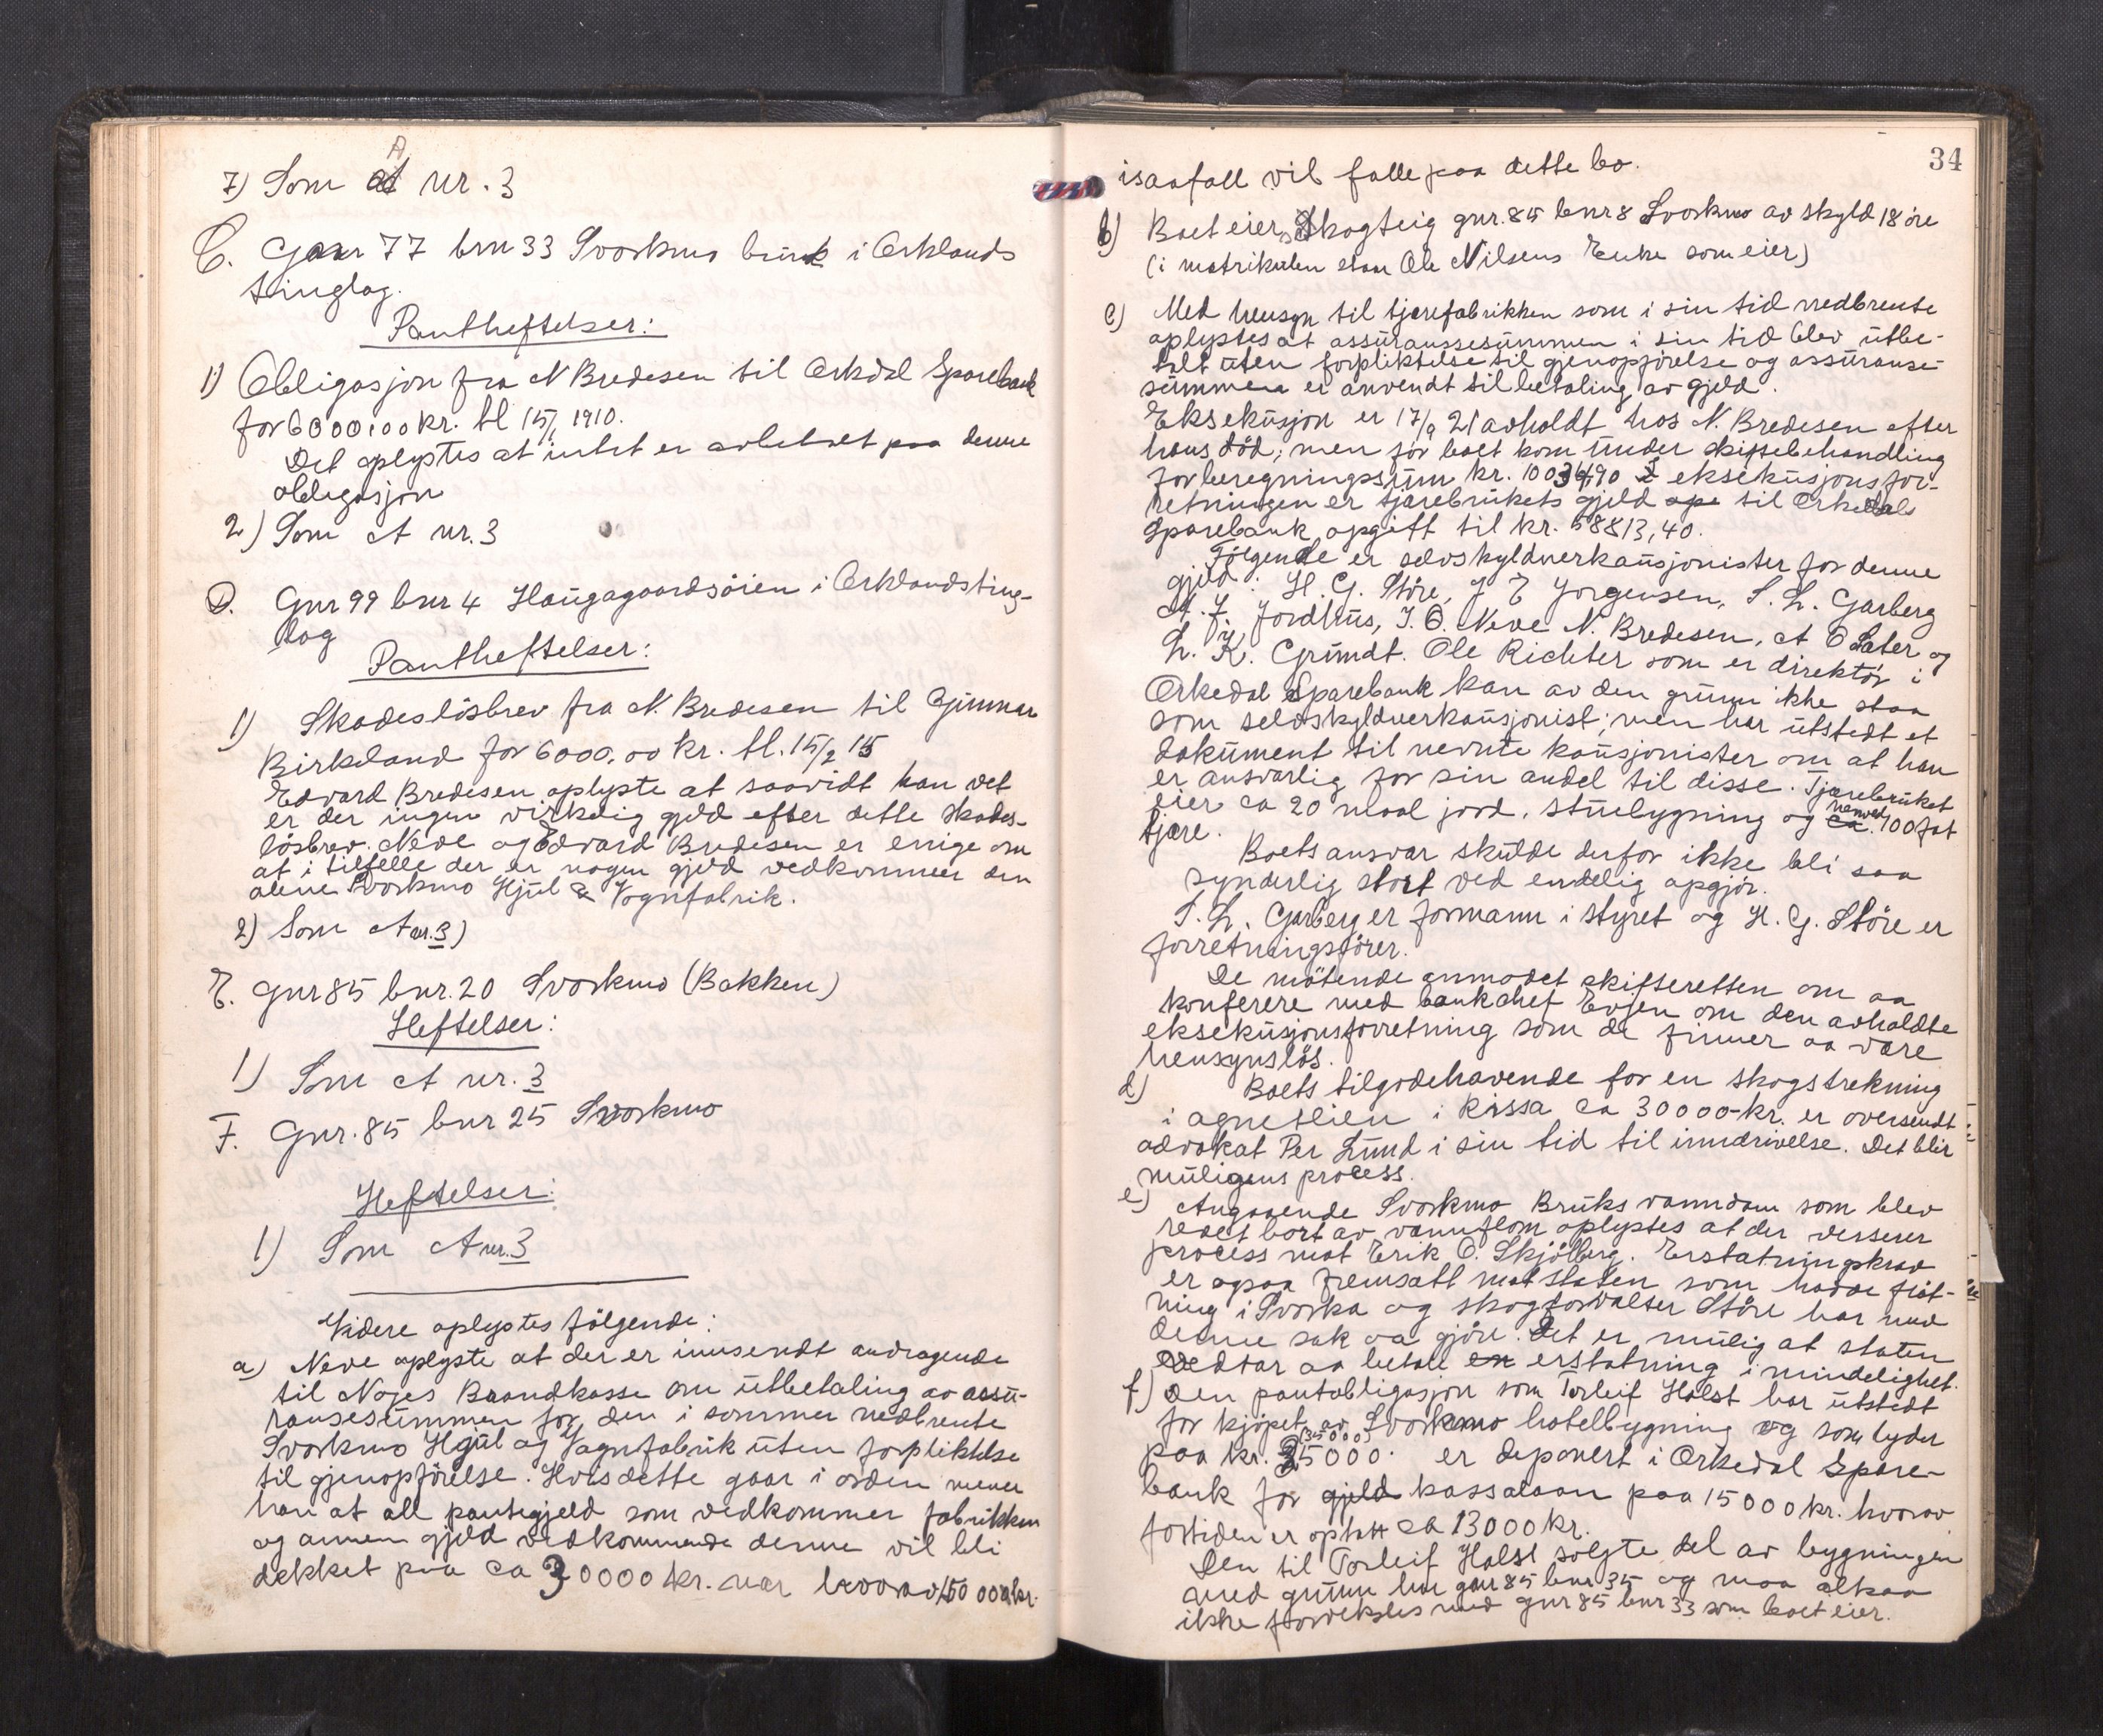 7) Som A nr. 3
C. Gnr 77 brn 33 Svorkmo bruk i Orklands
tinglag.
Pantheftelser:
1) Obligasjon fra N Bredesen til Orkdal Sparebank
for 6000,00 kr. tl 15/ 1910.
Det oplystes at intet er avbetalt paa denne
obligasjon
2) Som A nr. 3
D. Gnr 99 bnr 4 Haugagaardsöien i Orklandsting-
lag
Pantheftelser:
1) Skadeslösbrev fra N. Bredesen til Gunnar
Birkeland for 6000,00 kr. tl. 15/2 15
Edvard Bredesen oplyste at saavidt han vet
er der ingen virkelig gjeld efter dette skades-
lösbrev. Neve og Edvard Bredesen er enige om
at i tilfelle der er nogen gjeld vedkommer den
alene Svorkmo Hjul & Vognfabrik.
2) Som A nr. 3)
E. Gnr 85 bnr. 20 Svorkmo (Bakken)
Heftelser:
1) Som A nr. 3
F. Gnr. 85 bnr 25 Svorkmo
Heftelser:
1) Som A nr. 3
Videre oplystes fölgende:
a) Neve oplyste at der er innsendt andragende
til Noges Brandkasse om utbetaling av assu-
ransesummen for den i sommer nedbrente
Svorkmo Hjul og Vagnfabrik uten forpliktelse
til gjenopförelse. Hvis dette gaar i orden mener
han at all pantegjeld som vedkommer fabrikken
og annen gjeld vedkommende denne vil bli
dekket paa ca 30000 kr. nær hvorav 150 000 kr.
34
isaafall vil falle paa dette bo.
b) Boet eier Skogteig gnr. 85 bnr 8 Svorkmo av skyld 18 öre
(i matrikulen staar Ole Nilsens Enke som eier)
c) Med hensyn til tjærefabrikken som i sin tid nedbrente
oplystes at assuranssesummen i sin tid blev utbe-
talt uten forpliktelse til gjenopförelse og assuranse-
summen er anvendt til betaling av gjeld.
Eksekusjon er 17/9 21 avholdt hos N. Bredesen efter
hans död; men för boet kom under skiftebehandling
for beregningssum kr. 100 90 I eksekusjonsfor-
retningen er tjærebrukets gjeld op til Orkedals
Sparebank opgitt til kr. 58813,40.
Fölgende er selvskyldnerkausjonister for denne
gjeld: H. G. Störe, J E Jorgensen, S. L. Garberg
A. J. Jordhus, I. O. Neve N. Bredesen, A O Sæter og
L. K. Grundt. Ole Richter som er direktör i
Orkedal Sparebank kan av den grunn ikke staa
som selvskyldnerkausjonist; men har utstedt et
dokument til nevnte kausjonister om at han
er ansvarlig for sin andel til disse. Tjærebruket
eier ca 20 maal jord, stuebygning og ca. henved 100 fat
tjære.
Boets ansvar skulde derfor ikke bli saa
synderlig stort ved endelig opgjör.
S. L. Garberg er formann i styret og H. G. Störe er
forretningsförer.
De mötende anmodet skifteretten om aa
konferere med bankchef Evjen om den avholdte
eksekusjonsforretning som de finner aa være
hensynslös.
d) Boets tilgodehavende for en skogstrekning
i agnetlien i Rissa ca 30000 kr. er oversendt
advokat Per Lund i sin tid til inndrivelse. Det blir
muligens process.
e) Angaaende Svorkmo Bruks vanndam som blev
revet bort av vannflom oplystes at der verserer
process mot Erik O. Skjölberg. Erstatningskrav
er ogsaa fremsatt mot staten som hadde flöt-
ning i Svorka og skogforvalter Störe har med
denne sak aa gjöre. Det er mulig at staten
vedtar aa betale en erstatning i mindelighet.
f) Den pantobligasjon som Torleif Holst har utstedt
for kjöpet av Svorkmo hotelbygning og som lyder
paa kr. 35000. (35000) er deponert i Orkedal Spare-
bank for gjeld kassalaan paa 15000 kr. hvorav
fortiden er optatt ca 13000 kr.
Den til Torleif Holst solgte del av bygningen
med grunn har gnr 85 bnr 35 og maa altsaa
ikke forveksles med gnr 85 bnr 33 som boet eier.